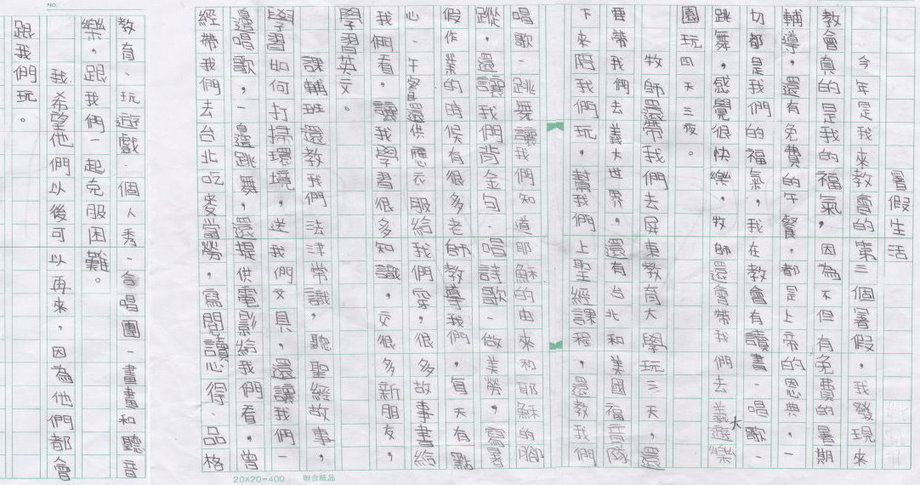 暑假生活
今年是我來教會的第三個暑假,我發現來
教會真的是我的福氣,因為不但有免費的暑期
輔導,還有免費的午餐,都是上帝的恩典,一
切都是我們的福氣,我在教會有讀書、唱歌、
跳舞,感覺很快樂,牧師還會帶我們去義大遊樂
園玩四天三夜。
牧師還帶我們去屏東教育大學玩三天,還
要帶我們去義大世界,還有台北和美國福音隊
下來陪我們玩,幫我們上聖經課程,還教我們
唱歌、跳舞讓我們知道耶穌的由來和耶穌的腳
蹤,還讓我們背金句、唱詩歌、做美勞,寫暑
假作業的時候有很多老師教導我們,夏天有點
心、午餐還供應衣服給我們穿,很多故事書給
我們看,讓我學習很多知識,交很多新朋友,
學習英文。
課輔班還教我們法律常識,聽聖經故事,
學習如何打掃環境,送我們文具,還讓我們一
邊唱歌,一邊跳舞,還提供電影給我們看,曾
經帶我們去台北吃麥當勞,寫閱讀心得、品格
教育、玩遊戲、個人秀、合唱團、畫畫和聽音
樂,跟我們一起克服困難。
我希望他們以後可以再來,因為他們都會
跟我們玩。
NO.
20X20=400 聯合紙品